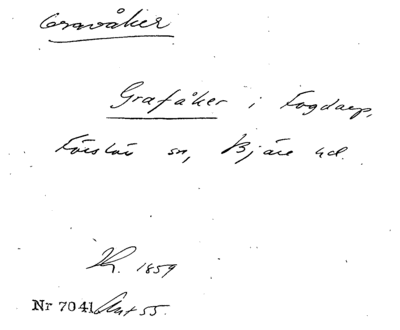 Gravåker
Grafåker i Fogdarp,
Förslöv sn, Bjäre hd.
1859
Nr 7041 55.